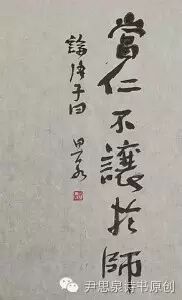 當仁不讓於師
論語子曰
尹思泉诗书原创